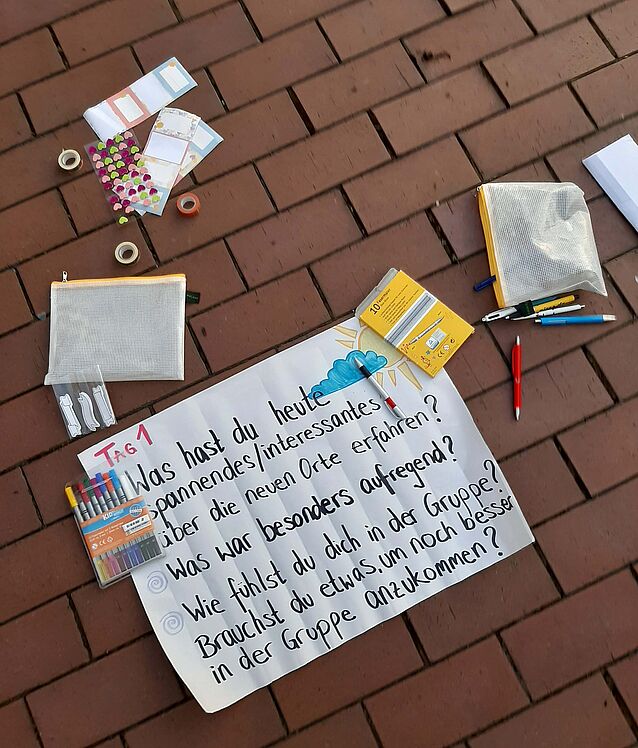 TAG 1
Was hast du heute
spannendes/interessantes
über die neuen Orte erfahren?
Was war besonders aufregend?
Wie fühlst du dich in der Gruppe?
Brauchst du etwas, um noch besser
in der Gruppe anzukommen?